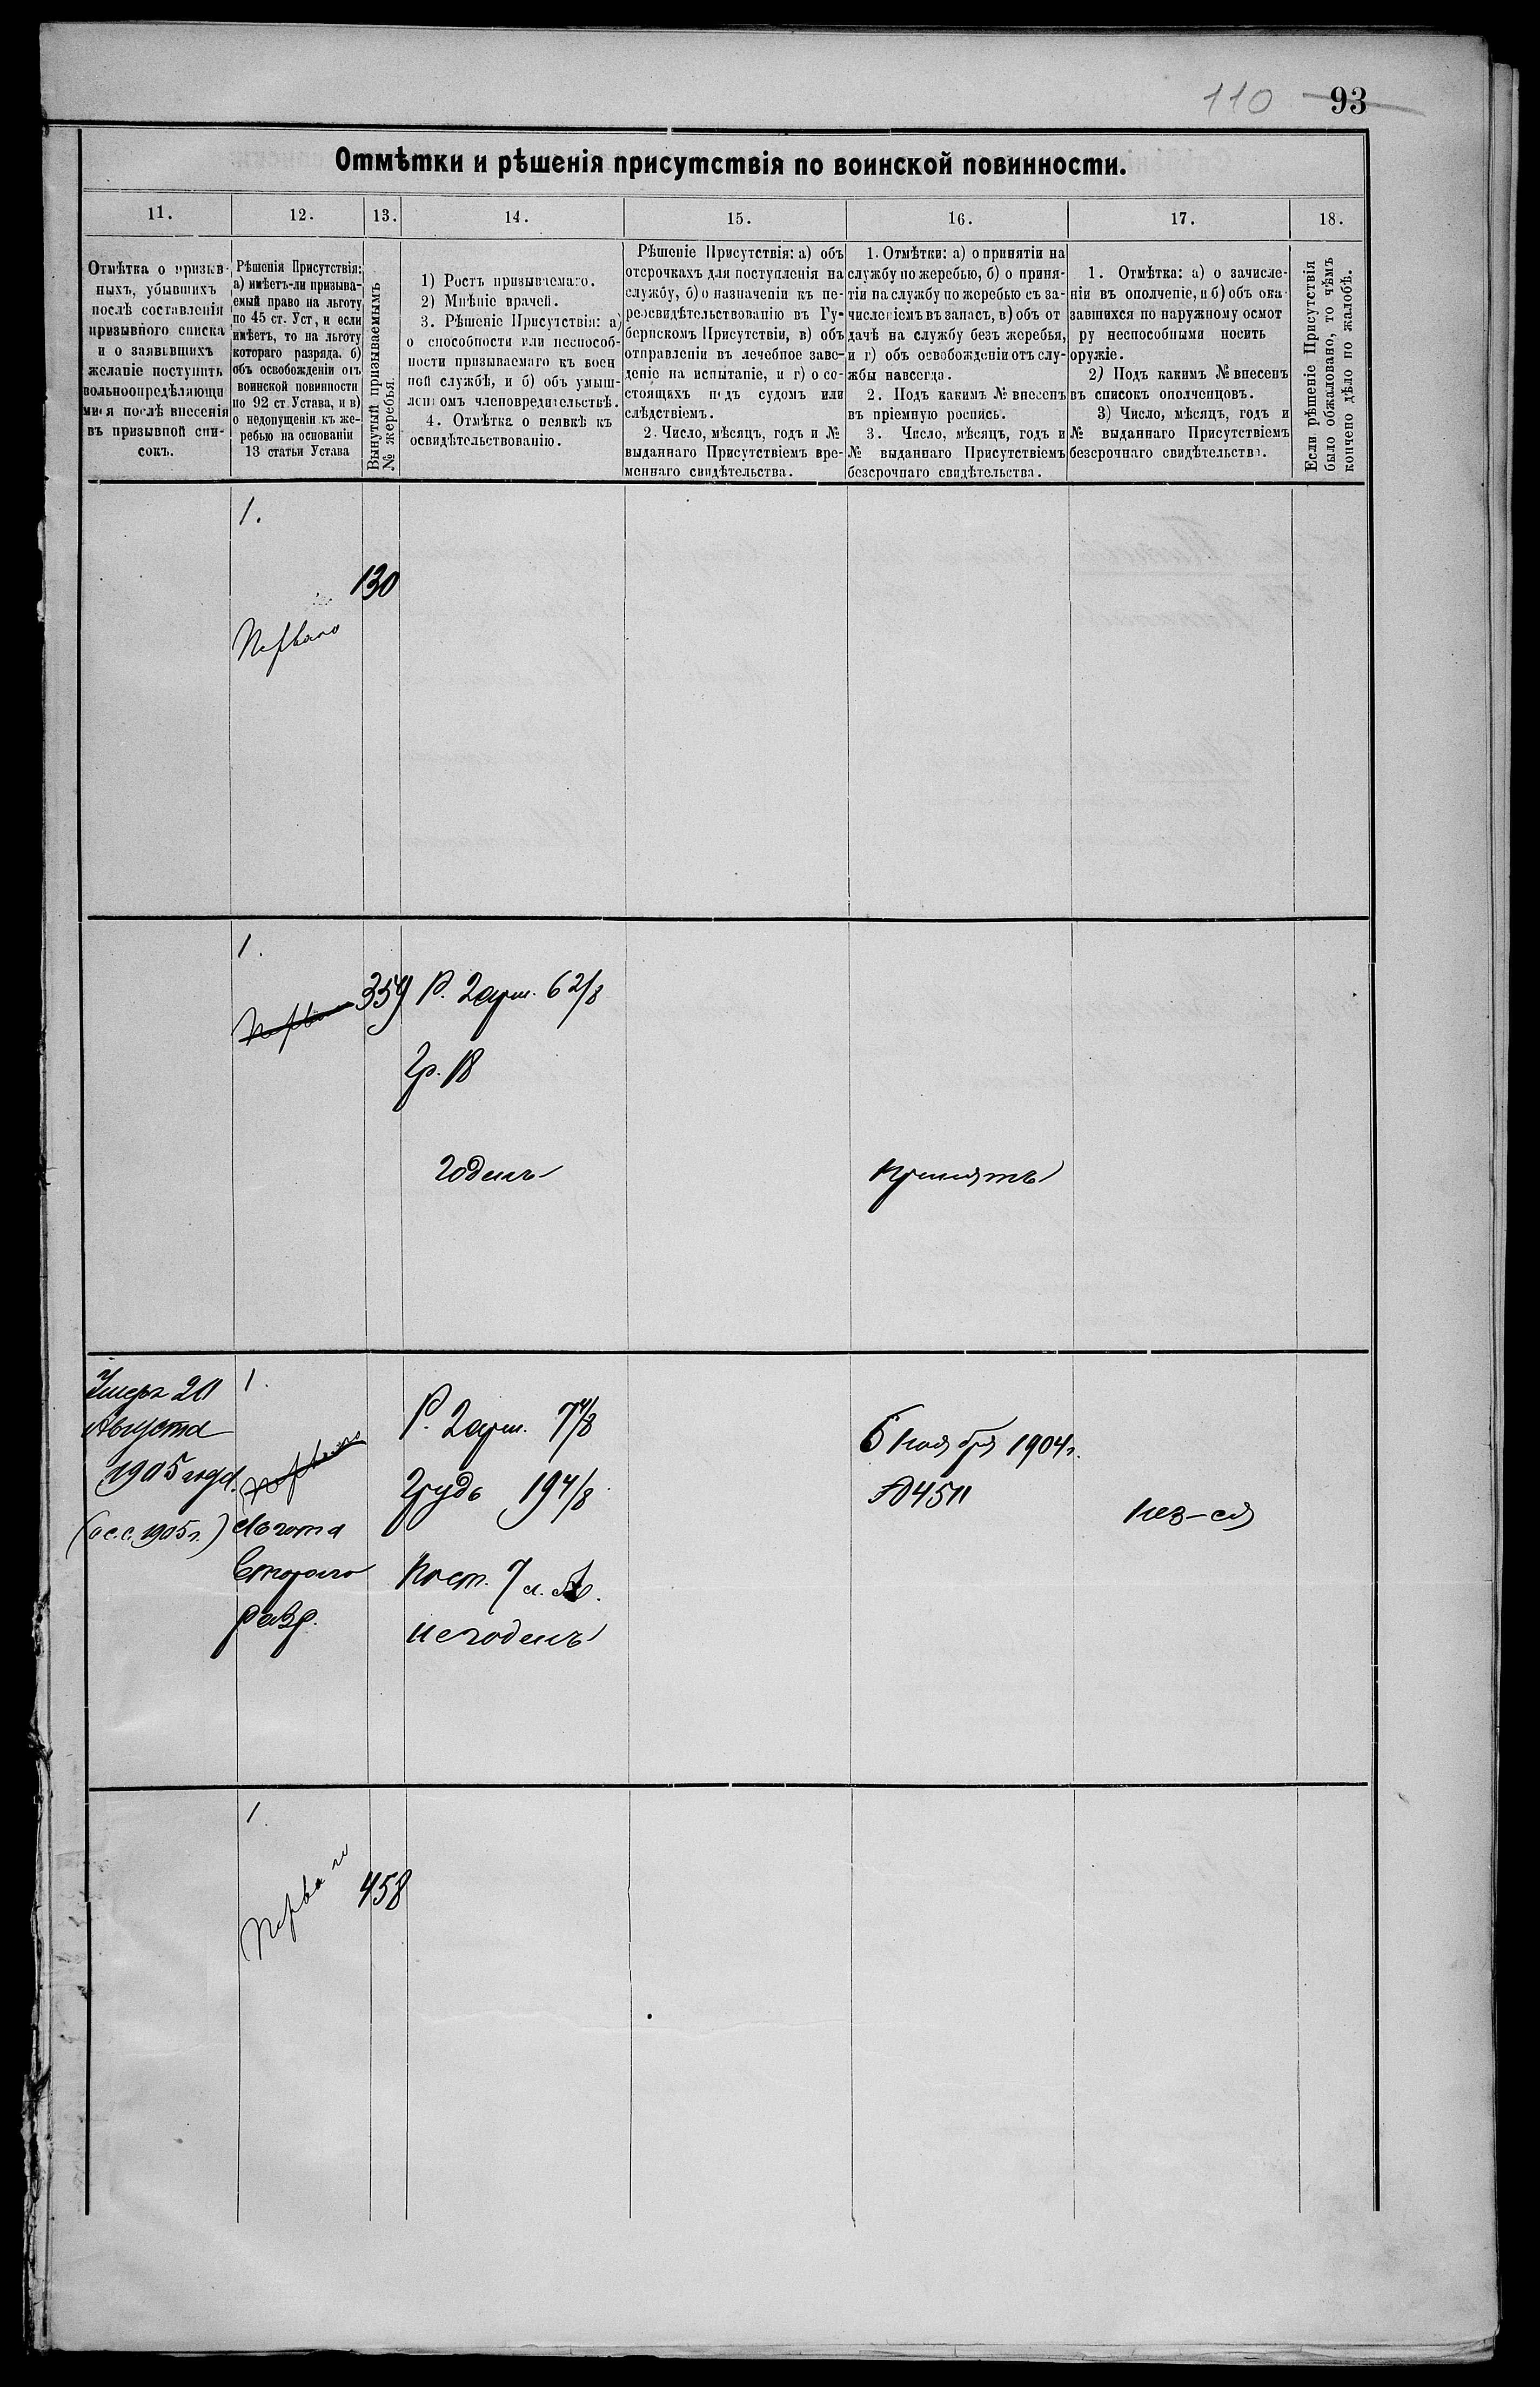 110 93
Отмѣтки и рѣшенія присутствія по воинской повинности.
11. 12. 13. 14. 15. 16. 17. 18.
Отмѣтка о призыв-
ныхъ, убывшихъ
послѣ составленія
призывного списка
и о заявившихъ
желаніе поступить
вольноопредѣляющи
мися послѣ внесенія
въ призывной спи-
сокъ.
Рѣшенія Присутствія:
а) имѣетъ-ли призыва-
емый право на льготу
по 45 ст. Уст, и если
имѣетъ, то на льготу
котораго разряда. б)
объ освобожденіи отъ
воинской повинности
по 92 ст. Устава, и в)
о недопущеніи къ же-
ребью на основаніи
13 статьи Устава
Вынутый призываемымъ
№ жеребья.
1) Ростъ призываемаго.
2) Мнѣніе врачей.
3. Рѣшеніе Присутствія: а)
о способности или неспособ-
ности призываемаго къ воен
ной службѣ, и б) объ умыш-
леномъ членовредительствѣ.
4. Отмѣтка о неявкѣ къ
освидѣтельствованію.
Рѣшеніе Присутствія: а) объ
отсрочкахъ для поступленія на
службу, б) о назначеніи къ пе-
реосвидѣтельствованію въ Гу-
бернскомъ Присутствіи, в) объ
отправленіи въ лечебное заве-
деніе на испытаніе, и г) о со-
стоящихъ подъ судомъ или
слѣдствіемъ.
2. Число, мѣсяцъ, годъ и №
выданнаго Присутствіемъ вре-
меннаго свидѣтельства.
1. Отмѣтки: а) о принятіи на
службу по жеребью, б) о приня-
тіи на службу по жеребью съ за-
численіемъ въ запасъ, в) объ от
дачѣ на службу безъ жеребья,
и г) объ освобожденіи отъ слу-
жбы навсегда.
2. Подъ какимъ № внесенъ
въ пріемную роспись.
3. Число, мѣсяцъ, годъ и
№ выданнаго Присутствіемъ
безсрочнаго свидѣтельства.
1. Отмѣтка: а) о зачисле-
ніи въ ополченіе, и б) объ ока
завшихся по наружному осмот
ру неспособными носить
оружіе.
2) Подъ какимъ № внесенъ
въ списокъ ополченцовъ.
3) Число, мѣсяцъ, годъ и
№ выданнаго Присутствіемъ
безсрочнаго свидѣтельства.
Если рѣшеніе Присутствія
было обжаловано, то чѣмъ
кончено дѣло по жалобѣ.
1.
130
Перваго
1.
359 Р. 2 арш. 6 2/8
Гр. 18
годенъ
принятъ
Умеръ 20
Августа
1905 года.
(о с. с. 1905 г.)
1.
Перваго
Льгота
Втораго
разр.
Р. 2 арш. 7 4/8
Грудь 19 4/8
Пост. 7 л. А.
негоденъ
6 Ноября 1904 г.
№ 4511
1.
Перваго
458